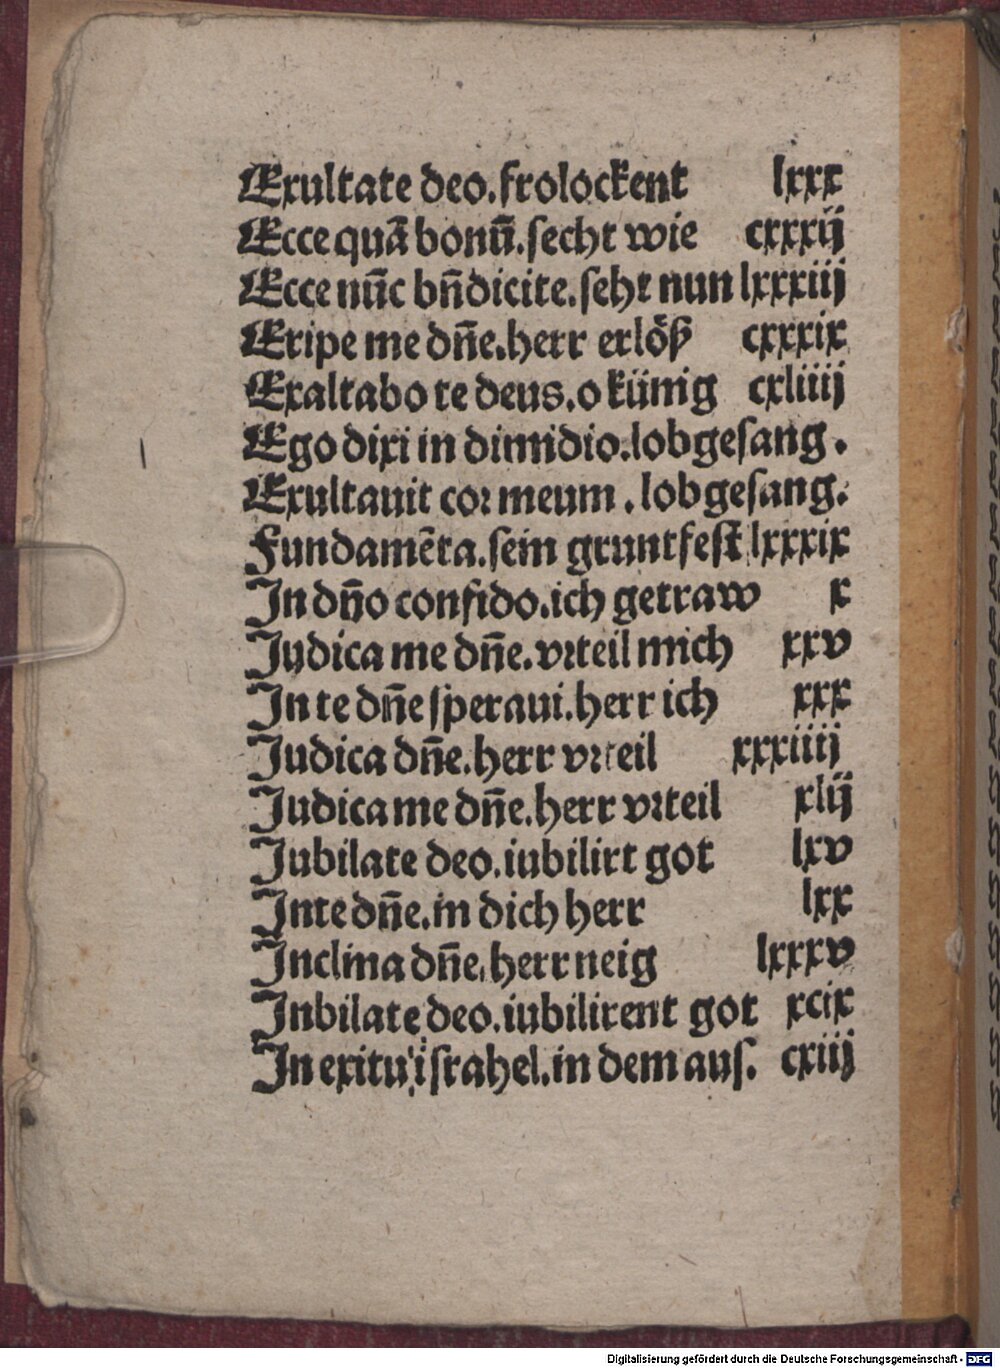 Exultate deo.frolockent lxxx
Ecce quā bonū.secht wie cxxxij
Ecce nūc bn̄dicite.seht nun lxxxiij
Eripe me dn̄e.herr erlöß cxxxix
Exaltabo te deus.o künig cxliiij
Ego dixi in dimidio.lobgesang.
Exultauit cor meum.lobgesang.
Fundamēta.sein gruntfest lxxxix
In dn̄o confido.ich getraw x
Judica me dn̄e.vrteil mich xxv
In te dn̄e speraui.herr ich xxx
Judica dn̄e.herr vrteil xxxiiij
Judica me dn̄e.herr vrteil xlij
Jubilate deo.iubilirt got lxv
Inte dn̄e.in dich herr lxx
Inclina dn̄e.herr neig lxxxv
Inbilate deo.iubilirent got xcix
In exitu israhel.in dem aus. cxiij
Digitalisierung gefördert durch die Deutsche Forschungsgemeinschaft - DFG